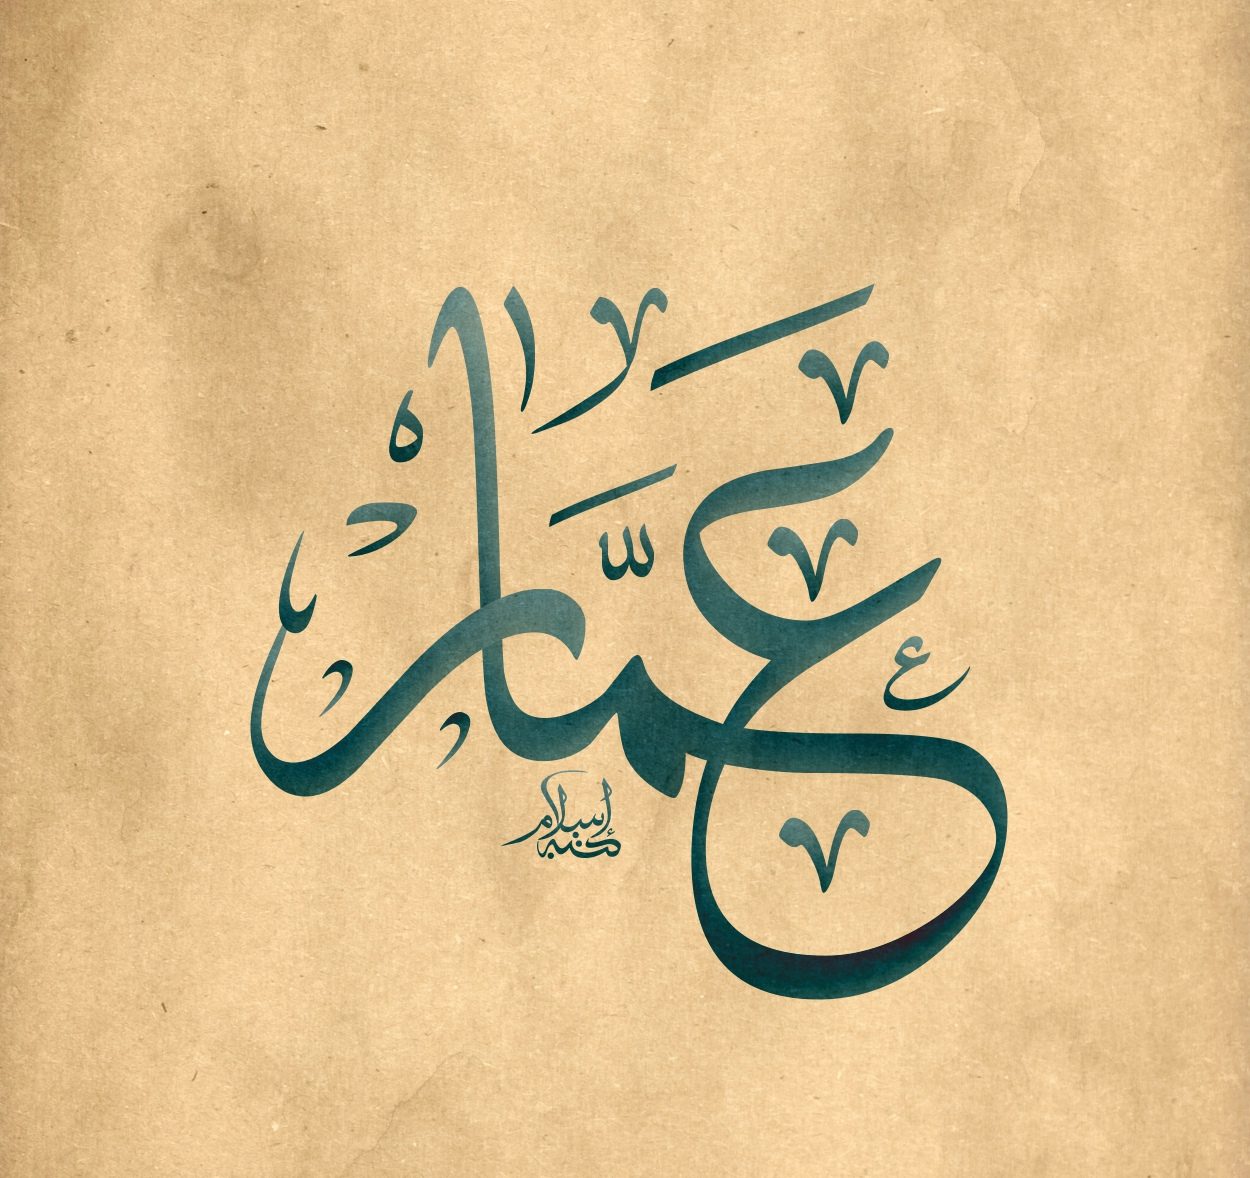 عمَّار
كتبه إسلام